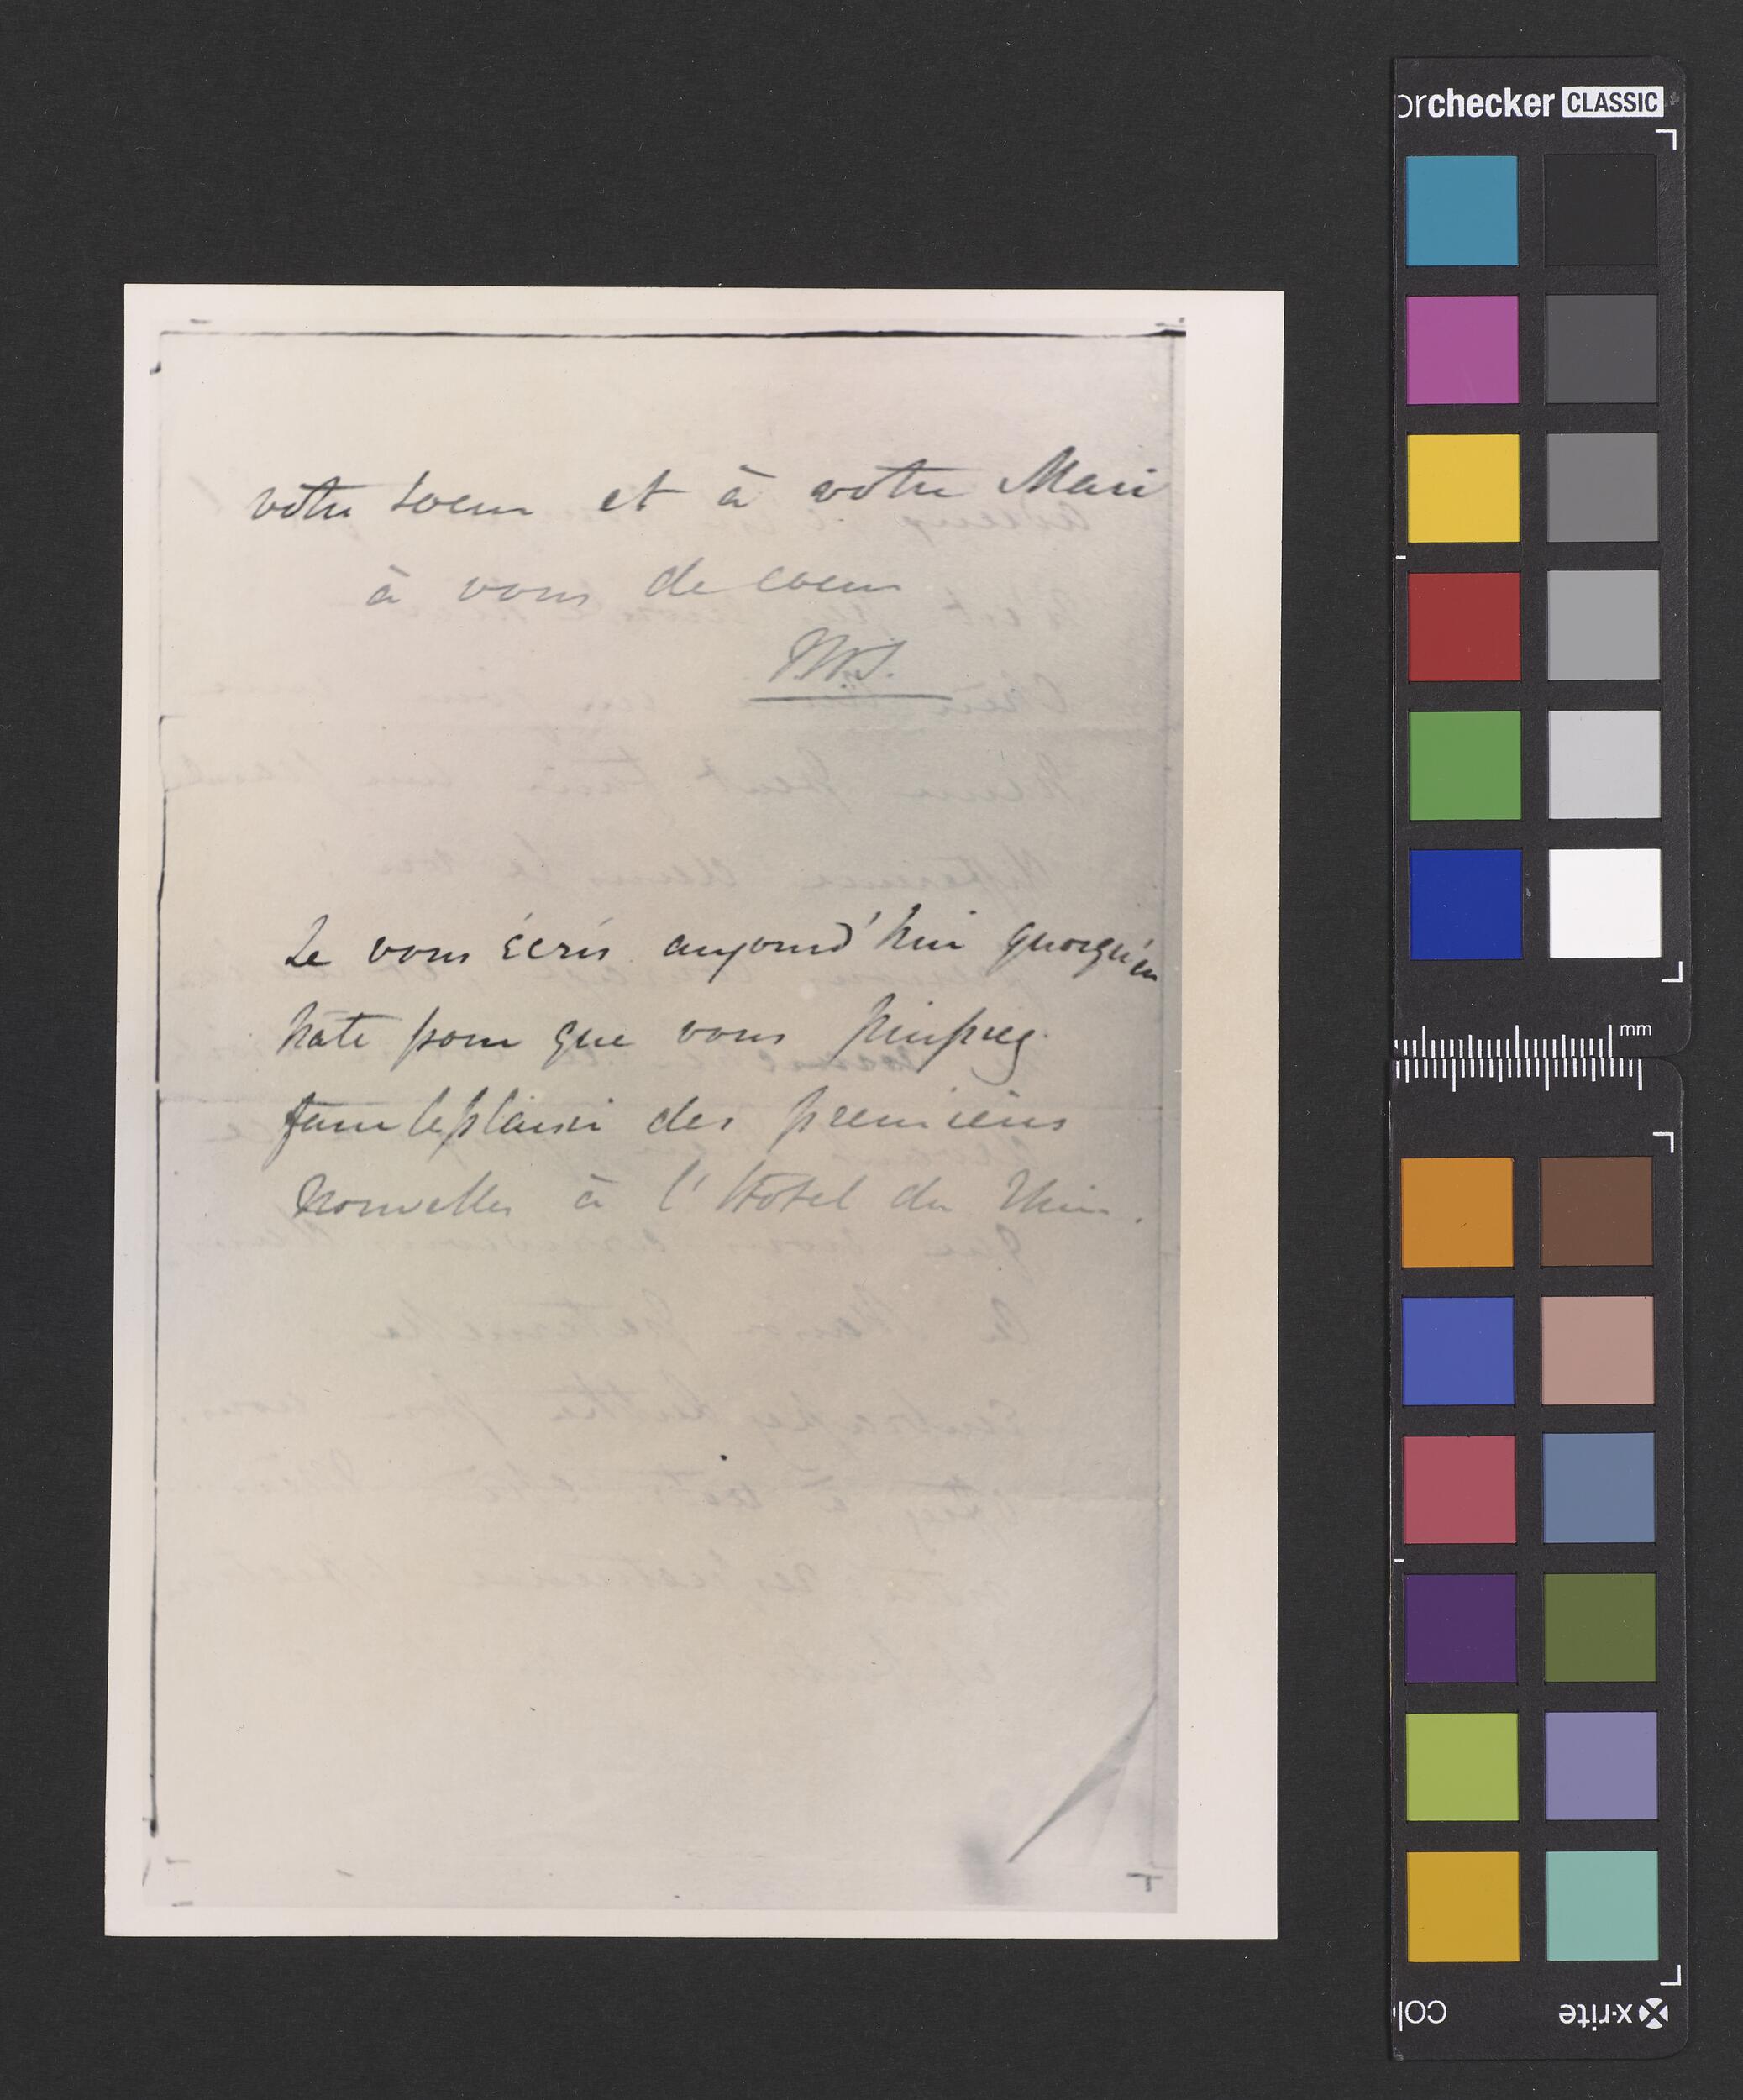 votre soeur et à votre Mari
à vous de coeur
Je vous écris aujourd'hui quoiqu'en
hâte pour que vous puissiez
faire le plaisir des premières
Nouvelles à l'Hotel du Rhin.
orchecker CLASSIC
mm
x-rite
col